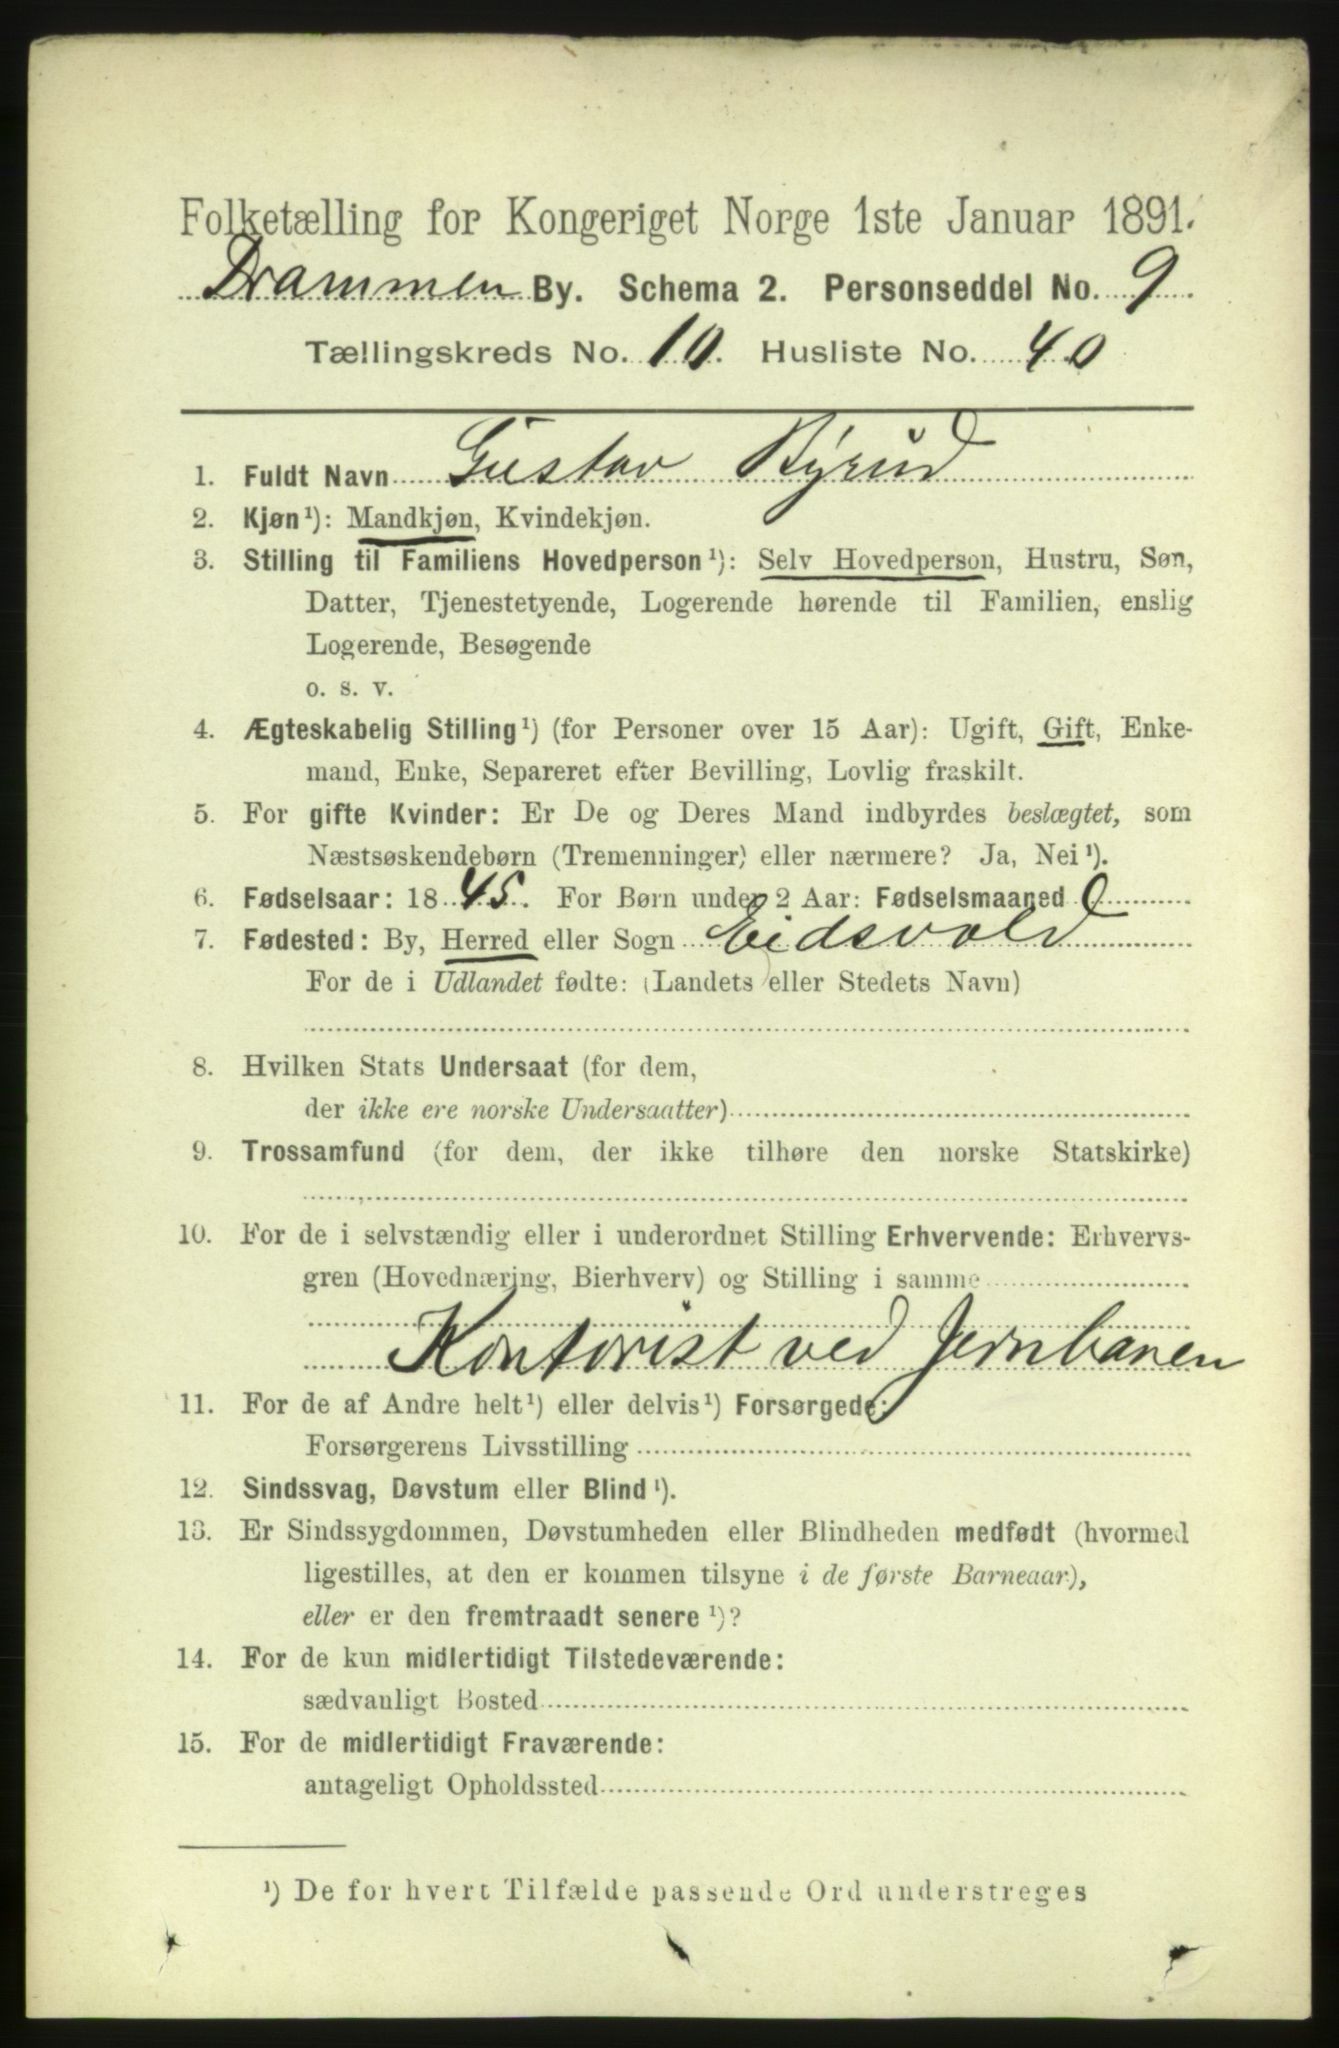 Folketælling for Kongeriget Norge 1ste Januar 1891.
Drammen By. Schema 2. Personseddel No. 9
Tællingskreds No. 10. Husliste No. 40
1. Fuldt Navn Gustav Byrud
2. Kjøn¹): Mandkjøn, Kvindekjøn.
3. Stilling til Familiens Hovedperson¹): Selv Hovedperson, Hustru, Søn,
Datter, Tjenestetyende, Logerende hørende til Familien, enslig
Logerende, Besøgende
o. s. v.
4. Ægteskabelig Stilling¹) (for Personer over 15 Aar): Ugift, Gift, Enke-
mand, Enke, Separeret efter Bevilling, Lovlig fraskilt.
5. For gifte Kvinder: Er De og Deres Mand indbyrdes beslægtet, som
Næstsøskendebørn (Tremenninger) eller nærmere? Ja, Nei¹).
6. Fødselsaar: 1845. For Børn under 2 Aar: Fødselsmaaned
7. Fødested: By, Herred eller Sogn Eidsvold
For de i Udlandet fødte: (Landets eller Stedets Navn)
8. Hvilken Stats Undersaat (for dem,
der ikke ere norske Undersaatter)
9. Trossamfund (for dem, der ikke tilhøre den norske Statskirke)
10. For de i selvstændig eller i underordnet Stilling Erhvervende: Erhvervs-
gren (Hovednæring, Bierhverv) og Stilling i samme
Kontorist ved Jernbanen
11. For de af Andre helt¹) eller delvis¹) Forsørgede:
Forsørgerens Livsstilling
12. Sindssvag, Døvstum eller Blind¹).
13. Er Sindssygdommen, Døvstumheden eller Blindheden medfødt (hvormed
ligestilles, at den er kommen tilsyne i de første Barneaar),
eller er den fremtraadt senere¹)?
14. For de kun midlertidigt Tilstedeværende:
sædvanligt Bosted
15. For de midlertidigt Fraværende:
antageligt Opholdssted
¹) De for hvert Tilfælde passende Ord understreges